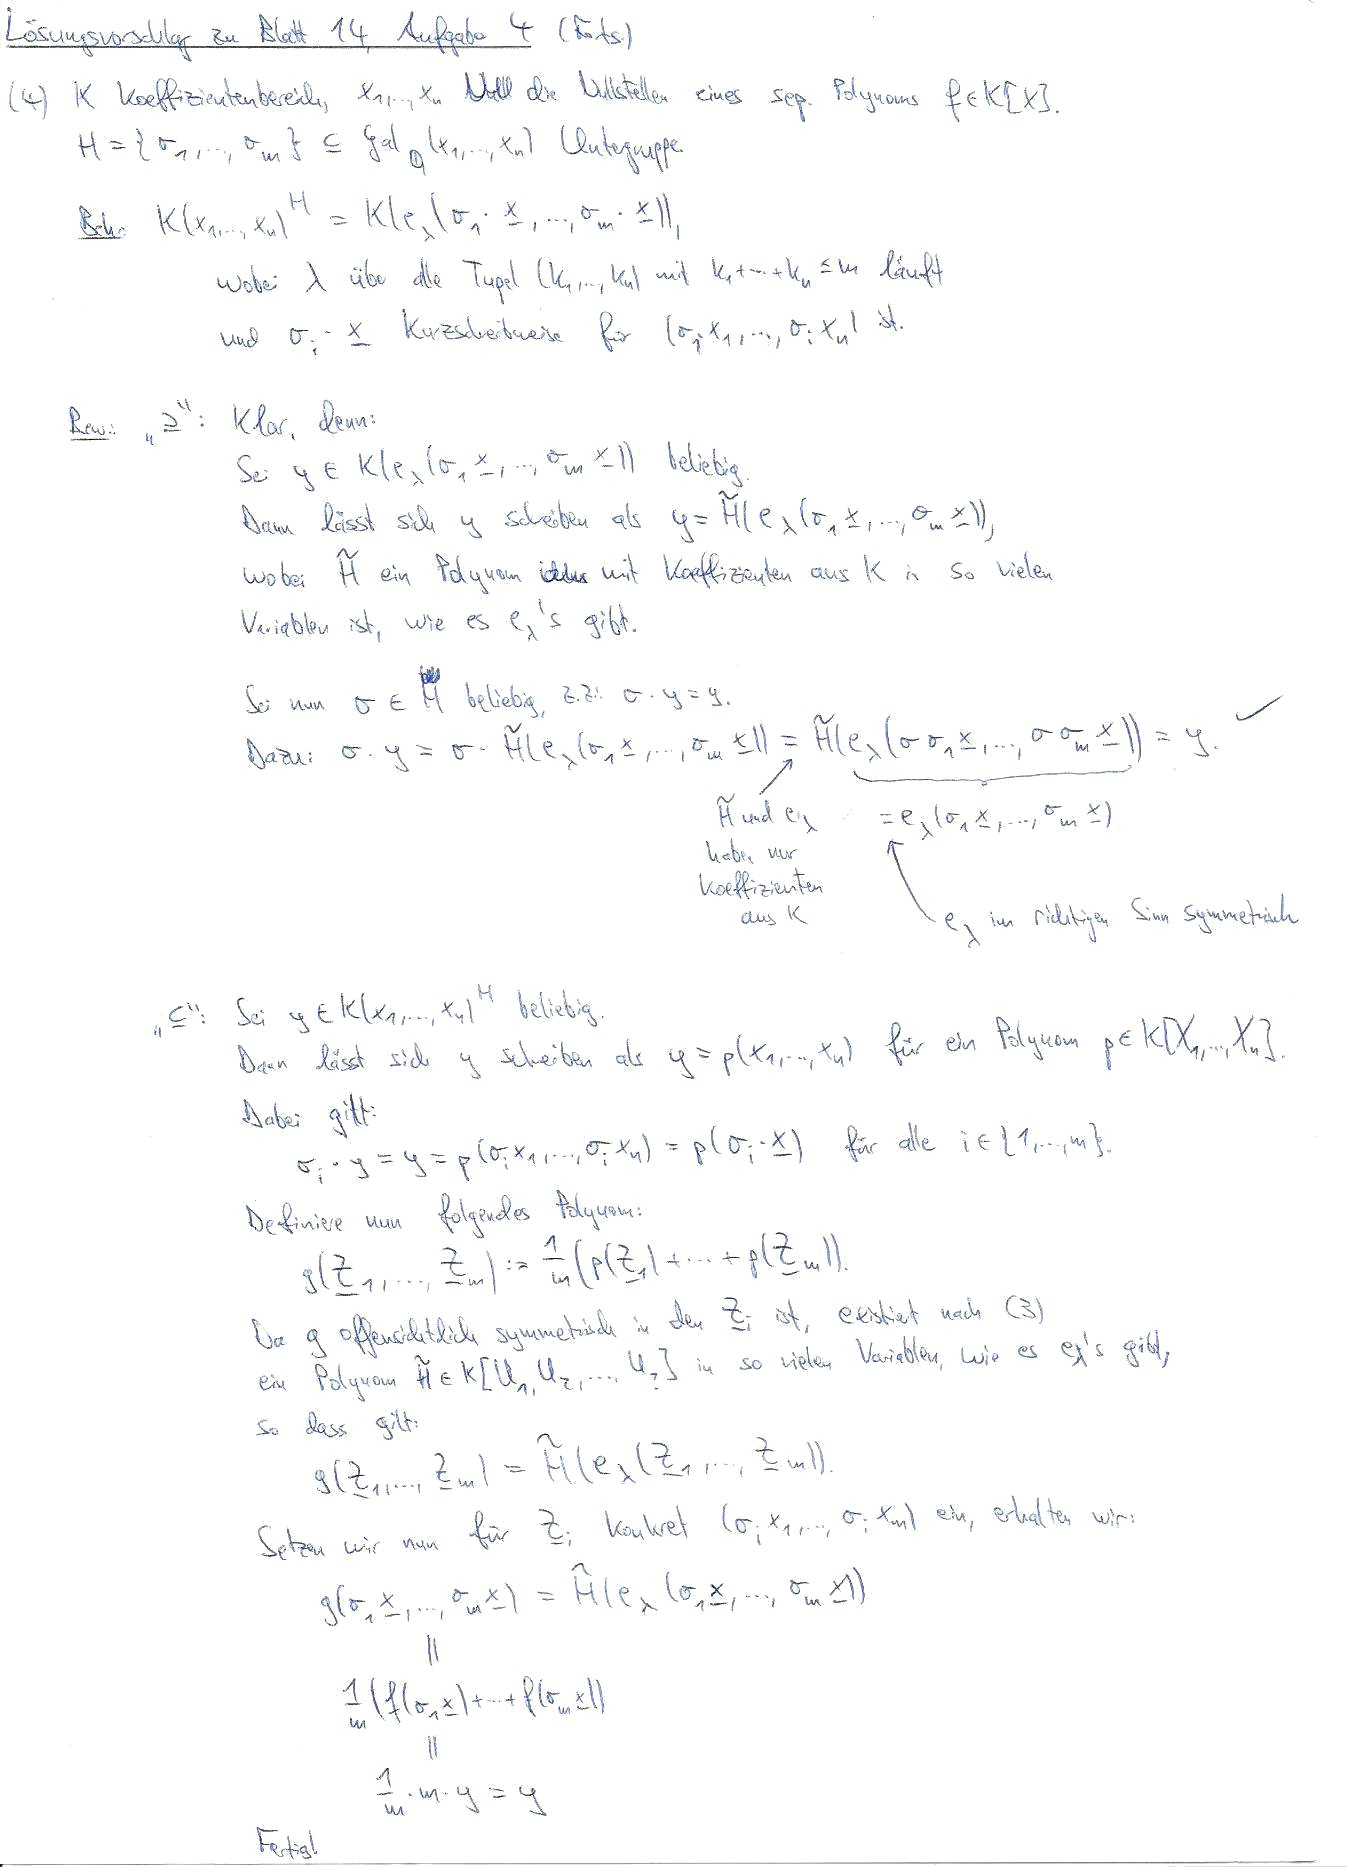 Lösungsvorschlag zu Blatt 14, Aufgabe 4 (Forts.)
(4) K Koeffizientenbereich, x₁,…,xₙ die Nullstellen eines sep. Polynoms f∈K[X].
H = {σ₁,…,σₘ} ⊆ Gal_Q(x₁,…,xₙ) Untergruppe.
Beh.: K(x₁,…,xₙ)^H = K(e_λ(σ₁·x̲,…,σₘ·x̲)),
wobei λ über alle Tupel (k₁,…,kₙ) mit k₁+⋯+kₙ ≤ m läuft
und σᵢ·x̲ Kurzschreibweise für (σᵢx₁,…,σᵢxₙ) ist.
Bew.: „⊇“: Klar, denn:
Sei y ∈ K(e_λ(σ₁x̲,…,σₘx̲)) beliebig.
Dann lässt sich y schreiben als y = H̃(e_λ(σ₁x̲,…,σₘx̲)),
wobei H̃ ein Polynom mit Koeffizienten aus K in so vielen
Variablen ist, wie es e_λ's gibt.
Sei nun σ ∈ H beliebig, z.z.: σ·y = y.
Dazu: σ·y = σ·H̃(e_λ(σ₁x̲,…,σₘx̲)) = H̃(e_λ(σσ₁x̲,…,σσₘx̲)) = y. ✓
H̃ und e_λ = e_λ(σ₁x̲,…,σₘx̲)
haben nur
Koeffizienten
aus K
e_λ im richtigen Sinn symmetrisch
„⊆“: Sei y ∈ K(x₁,…,xₙ)^H beliebig.
Dann lässt sich y schreiben als y = p(x₁,…,xₙ) für ein Polynom p∈K[X₁,…,Xₙ].
Dabei gilt:
σᵢ·y = y = p(σᵢx₁,…,σᵢxₙ) = p(σᵢ·x̲) für alle i∈{1,…,m}.
Definiere nun folgendes Polynom:
g(Z̲₁,…,Z̲ₘ) := 1/m (p(Z̲₁)+⋯+p(Z̲ₘ)).
Da g offensichtlich symmetrisch in den Z̲ᵢ ist, existiert nach (3)
ein Polynom H̃∈K[U₁,U₂,…,U_?] in so vielen Variablen, wie es e_λ's gibt,
so dass gilt:
g(Z̲₁,…,Z̲ₘ) = H̃(e_λ(Z̲₁,…,Z̲ₘ)).
Setzen wir nun für Z̲ᵢ konkret (σᵢx₁,…,σᵢxₙ) ein, erhalten wir:
g(σ₁x̲,…,σₘx̲) = H̃(e_λ(σ₁x̲,…,σₘx̲))
||
1/m (f(σ₁x̲)+⋯+f(σₘx̲))
||
1/m · m · y = y
Fertig!